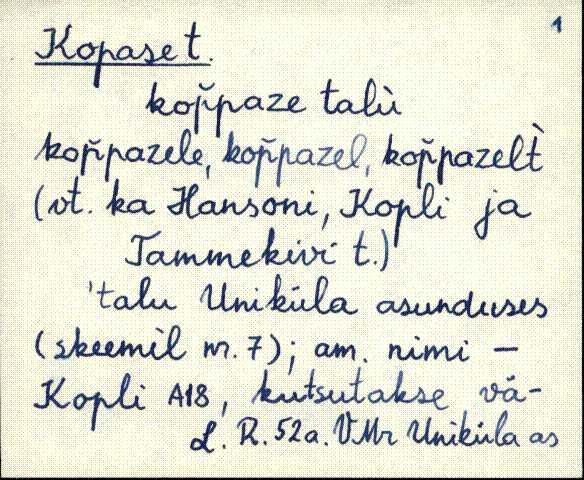 1
Kopase t.
kop̆paze talù
kop̆pazele, kop̆pazel, kop̆pazelt̀
(vt. ka Hansoni, Kopli ja
Tammekivi t.)
'talu Uniküla asunduses
(skeemil nr. 7); am. nimi –
Kopli A18, kutsutakse vä-
L. R. 52a. VMr Uniküla as